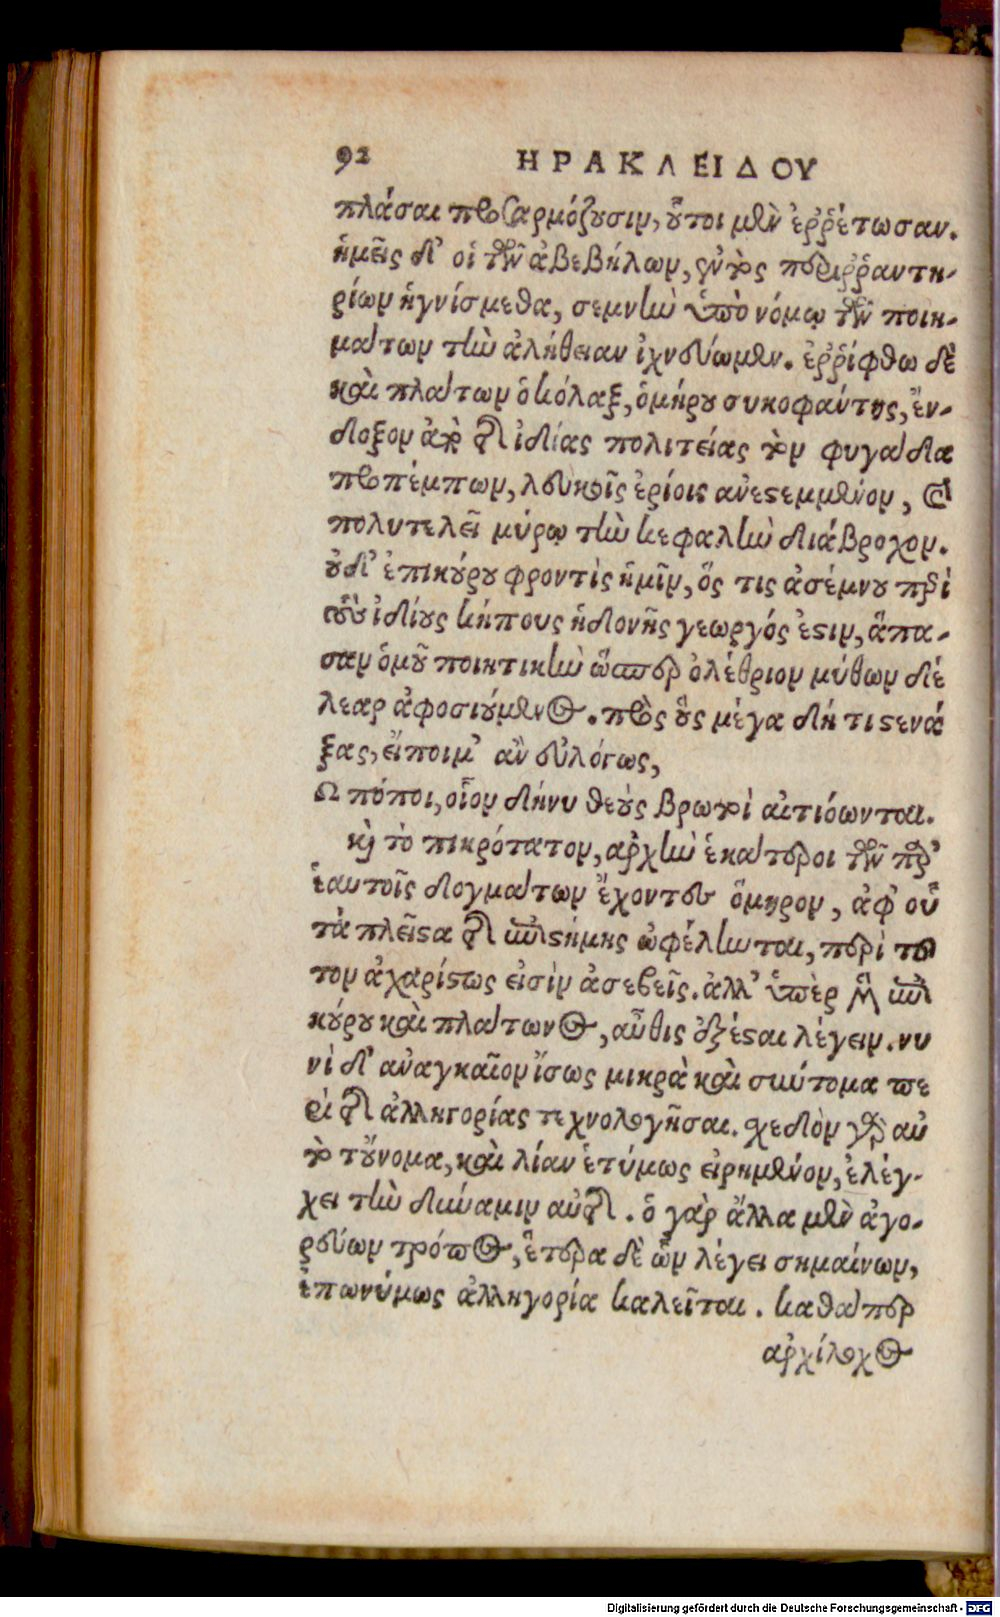 92 ΗΡΑΚΛΕΙΔΟΥ
πλάσαι προσαρμόζουσιν, οὗτοι μὲν ἐῤῥέτωσαν.
ἡμεῖς δ' οἳ τῶν ἀβεβήλων, ἐντὸς περιῤῥαντη-
ρίων ἡγνίσμεθα, σεμνὴν ὑπὸ νόμῳ τῶν ποιη-
μάτων τὴν ἀλήθειαν ἰχνεύωμεν. ἐῤῥίφθω δὲ
καὶ πλάτων ὁ κόλαξ, ὁμήρου συκοφάντης, ἔν-
δοξον ἀπὸ τῆς ἰδίας πολιτείας τὸν φυγάδα
προπέμπων, λευκοῖς ἐρίοις ἀνεστεμμένον, καὶ
πολυτελεῖ μύρῳ τὴν κεφαλὴν διάβροχον.
οὐδ' ἐπικούρου φροντὶς ἡμῖν, ὅς τις ἀσέμνου περὶ
τοὺς ἰδίους κήπους ἡδονῆς γεωργός ἐστιν, ἅπα-
σαν ὁμοῦ ποιητικὴν ὥσπερ ὀλέθριον μύθων δέ
λεαρ ἀφοσιούμενος. πρὸς οὓς μέγα δή τι στενά
ξας, εἴποιμ' ἂν εὐλόγως,
Ω πόποι, οἷον δήνυ θεοὺς βροτοὶ αἰτιόωνται.
καὶ τὸ πικρότατον, ἀρχὴν ἑκάτεροι τῶν παρ'
ἑαυτοῖς δογμάτων ἔχοντες ὅμηρον, ἀφ' οὗ
τὰ πλεῖστα τῆς ἐπιστήμης ὠφέληνται, περὶ τοῦ
τον ἀχαρίστως εἰσὶν ἀσεβεῖς. ἀλλ' ὑπὲρ μὲν ἐπι
κούρου καὶ πλάτωνος, αὖθις ἐξέσται λέγειν. νυ
νὶ δ' ἀναγκαῖον ἴσως μικρὰ καὶ σύντομα πε
ρὶ τῆς ἀλληγορίας τεχνολογῆσαι. σχεδὸν γὰρ αὐ
τὸ τοὔνομα, καὶ λίαν ἐτύμως εἰρημένον, ἐλέγ-
χει τὴν δύναμιν αὐτῆς. ὁ γὰρ ἄλλα μὲν ἀγο-
ρεύων τρόπος, ἕτερα δὲ ὧν λέγει σημαίνων,
ἐπωνύμως ἀλληγορία καλεῖται. καθάπερ
ἀρχίλοχος
Digitalisierung gefördert durch die Deutsche Forschungsgemeinschaft - DFG